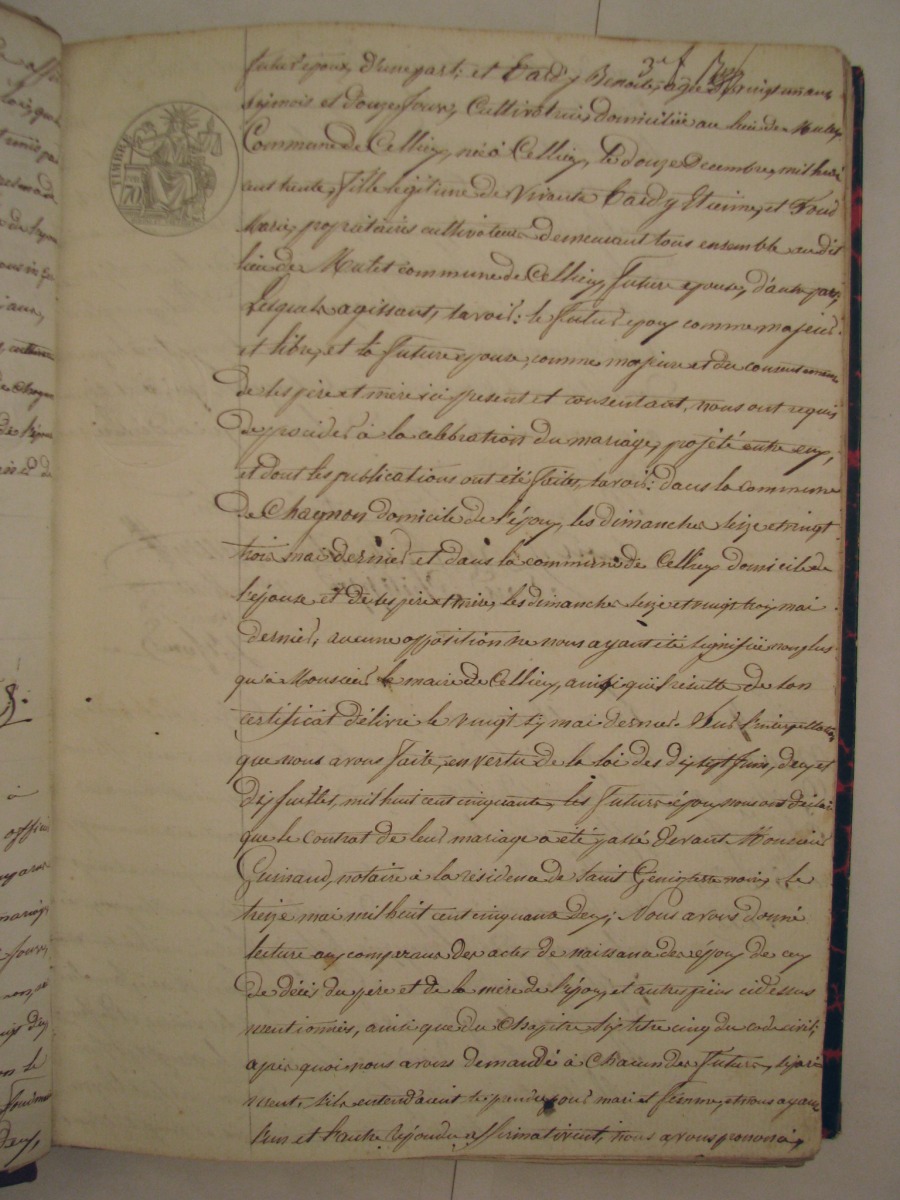 TIMBRE
futur époux, d'une part; et Tardy Benoîte, agée de vingt un ans
six mois et douze jours, Cultivatrice, domiciliée au lieu de Mulet
Commune de Cellieu, née à Cellieu, le douze Decembre, mil huit
cent trente, fille légitime de vivants Tardy Etienne, et Fond
Marie, propriétaires cultivateurs demeurant tous ensemble au dit
lieu de Mulet commune de Cellieu, future epouse, d'autre part,
Lesquels agissant, savoir: le futur epoux comme majeur
et libre, et la future épouse, comme majeure et du consentement
de ses pere et mère ici présent et consentant, nous ont requis
de procéder à la celebration du mariage, projeté entre eux,
et dont les publications ont été faites, savoir: dans la commune
de Chagnon domicile de l'époux, les dimanches seize et vingt
trois mai dernier et dans la commune de Cellieu domicile de
l'épouse et de ses pere et mère, les dimanches seize et vingt trois mai
dernier, aucune opposition ne nous ayant été signifiée non plus
qu'à Monsieur le maire de Cellieu, ainsi qu'il résulte de son
certificat délivré le vingt six mai dernier. Sur l'interpellation
que nous avons faite, en vertu de la loi des dix sept juin, deux et
dix juillet, mil huit cent cinquante, les futurs époux nous ont déclaré
que le contrat de leur mariage a été passé devant Monsieur
notaire à la résidence de Saint Genis terre noire, le
treize mai mil huit cent cinquante deux; Nous avons donné
lecture aux comparans des actes de naissance des époux de ceux
de décès du père et de la mère de l'époux, et autres pièces ci dessus
mentionnées, ainsi que du Chapitre six titre cinq du code civil;
après quoi nous avons demandé à Chacun des futurs, séparé
ment, s'ils entendaient se prendre pour mari et femme, et nous ayant
l'un et l'autre répondu affirmativement, nous avons prononcé,